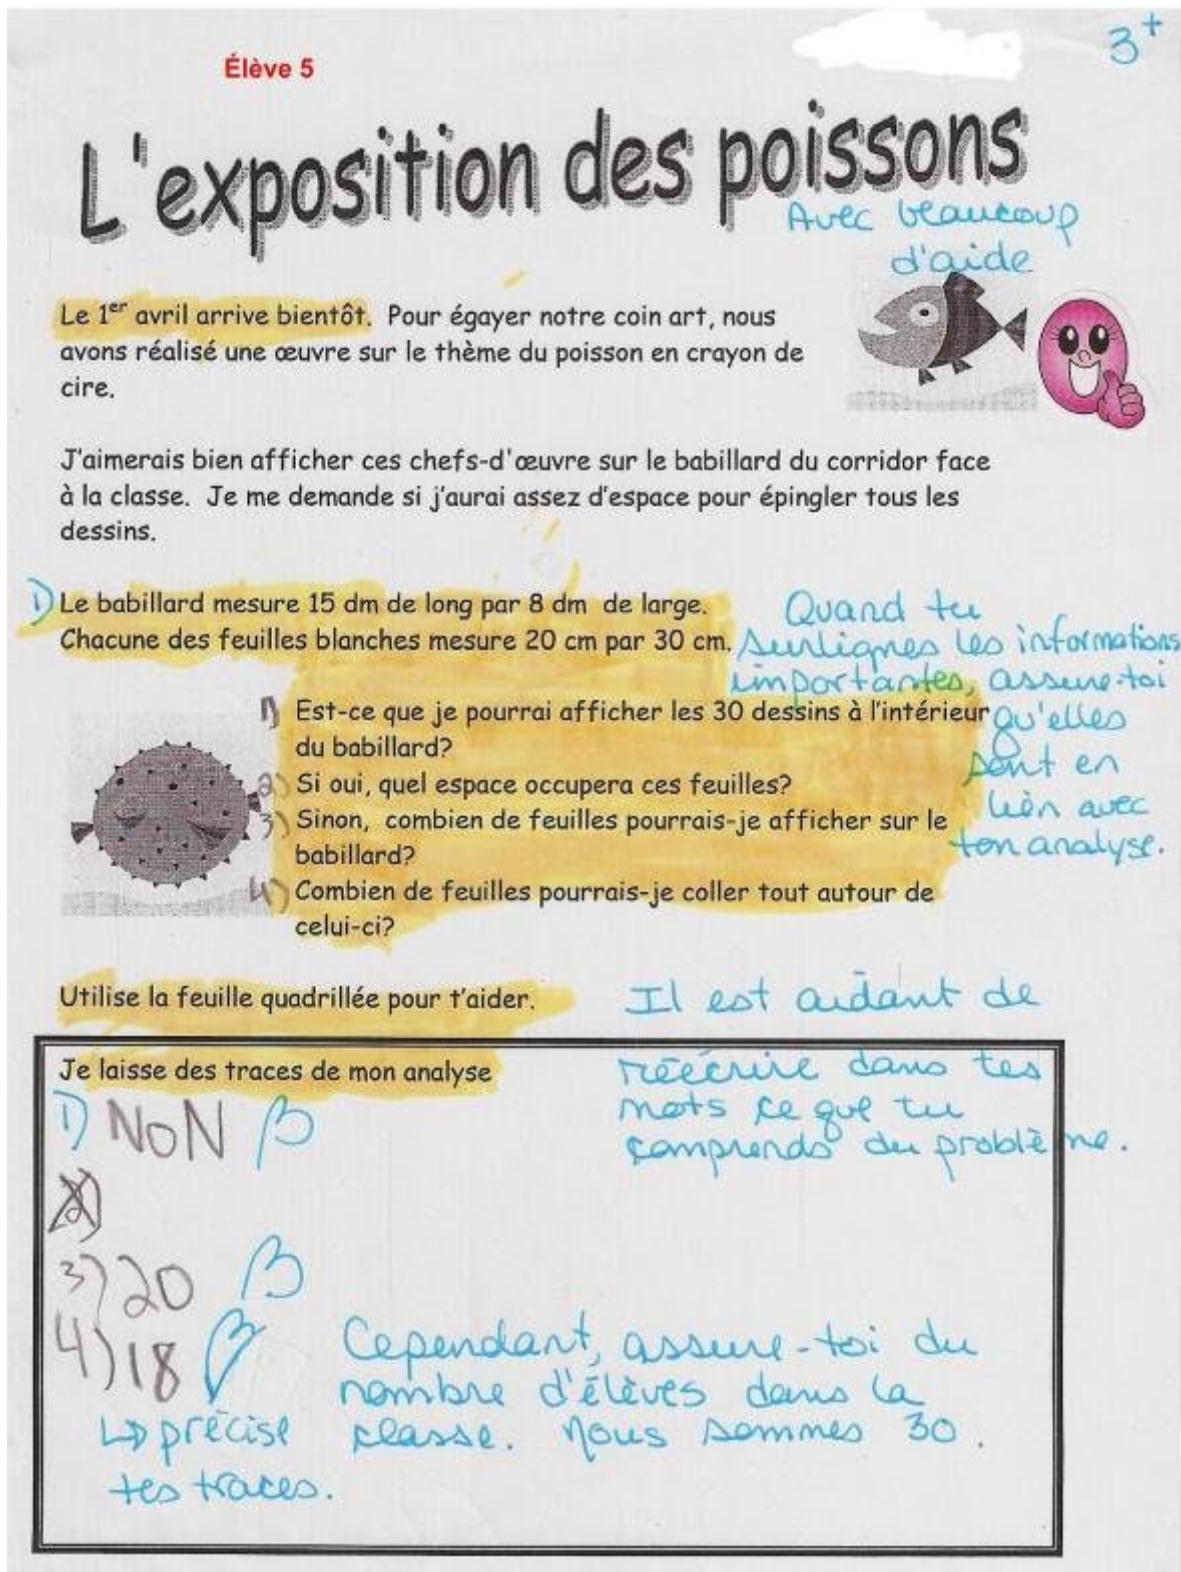 3+
Élève 5
L'exposition des poissons
Avec beaucoup
d'aide
Le 1er avril arrive bientôt. Pour égayer notre coin art, nous
avons réalisé une œuvre sur le thème du poisson en crayon de
cire.
J'aimerais bien afficher ces chefs-d'œuvre sur le babillard du corridor face
à la classe. Je me demande si j'aurai assez d'espace pour épingler tous les
dessins.
1) Le babillard mesure 15 dm de long par 8 dm de large.
Chacune des feuilles blanches mesure 20 cm par 30 cm.
Quand tu
surlignes les informations
importantes, assure-toi
qu'elles
sont en
lien avec
ton analyse.
1) Est-ce que je pourrai afficher les 30 dessins à l'intérieur
du babillard?
2) Si oui, quel espace occupera ces feuilles?
3) Sinon, combien de feuilles pourrais-je afficher sur le
babillard?
4) Combien de feuilles pourrais-je coller tout autour de
celui-ci?
Utilise la feuille quadrillée pour t'aider.
Il est aidant de
réécrire dans tes
mots ce que tu
comprends du problème.
Je laisse des traces de mon analyse
1) NON
2)
3) 20
4) 18
↳ précise
tes traces.
Cependant, assure-toi du
nombre d'élèves dans la
classe. Nous sommes 30.